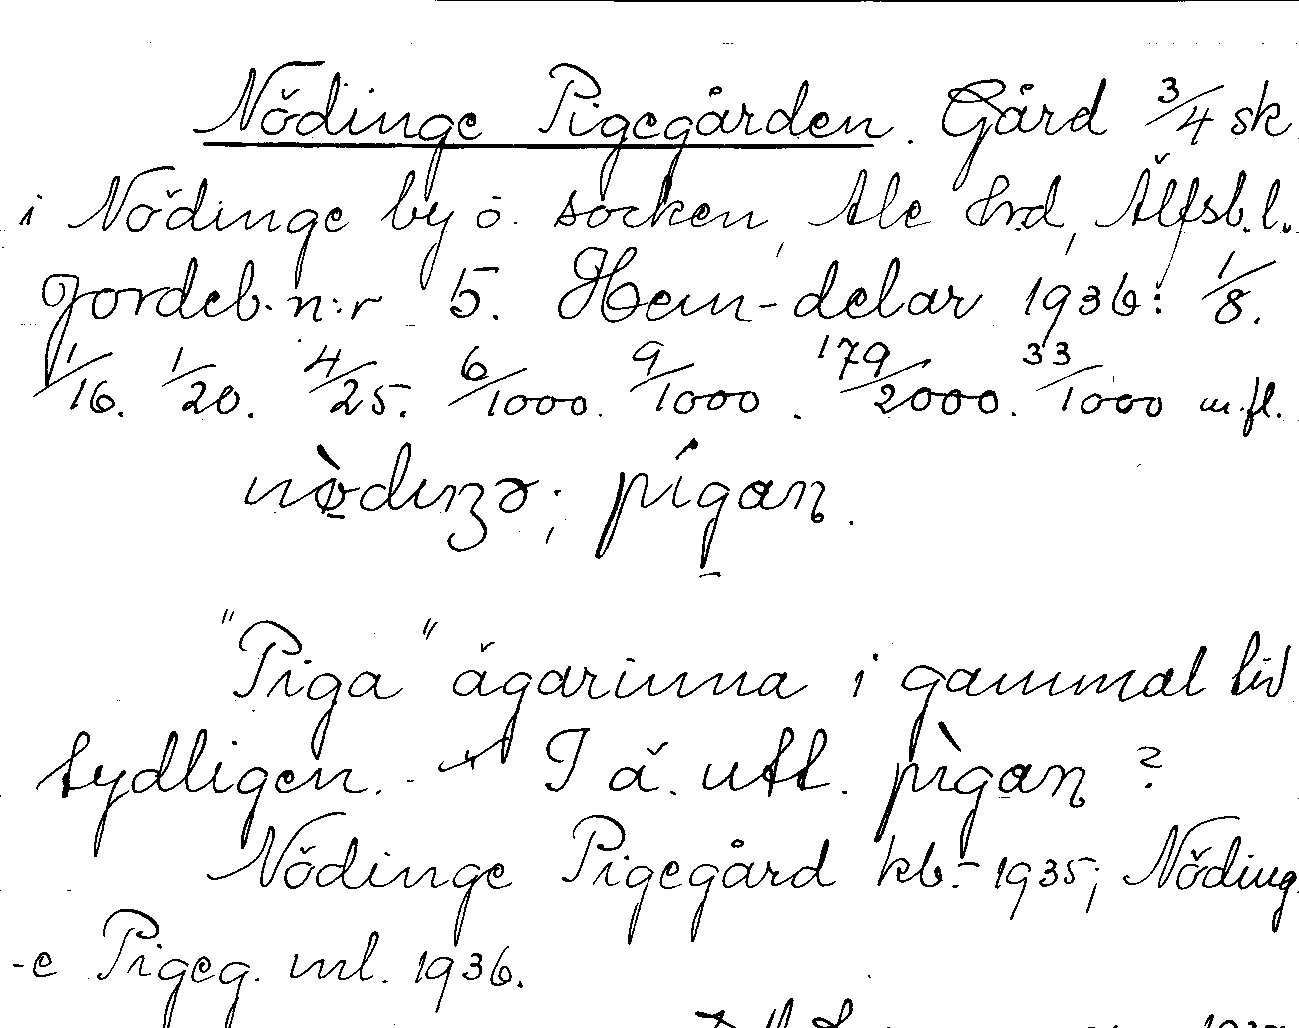 Nödinge Pigegården. Gård 3/4 sk
i Nödinge by o. socken, Ale hrd, Älfsb. l.
Jordeb. n:r 5. Hem-delar 1936: 1/8.
1/16. 1/20. 4/25. 6/1000. 9/1000. 179/2000. 33/1000 m.fl.
nø̀dıŋə; pígan.
"Piga" ägarinna i gammal tid
tydligen. - I ä. utt. pìgan?
Nödinge Pigegård kb. - 1935; Nöding
-e Pigeg. ml. 1936.